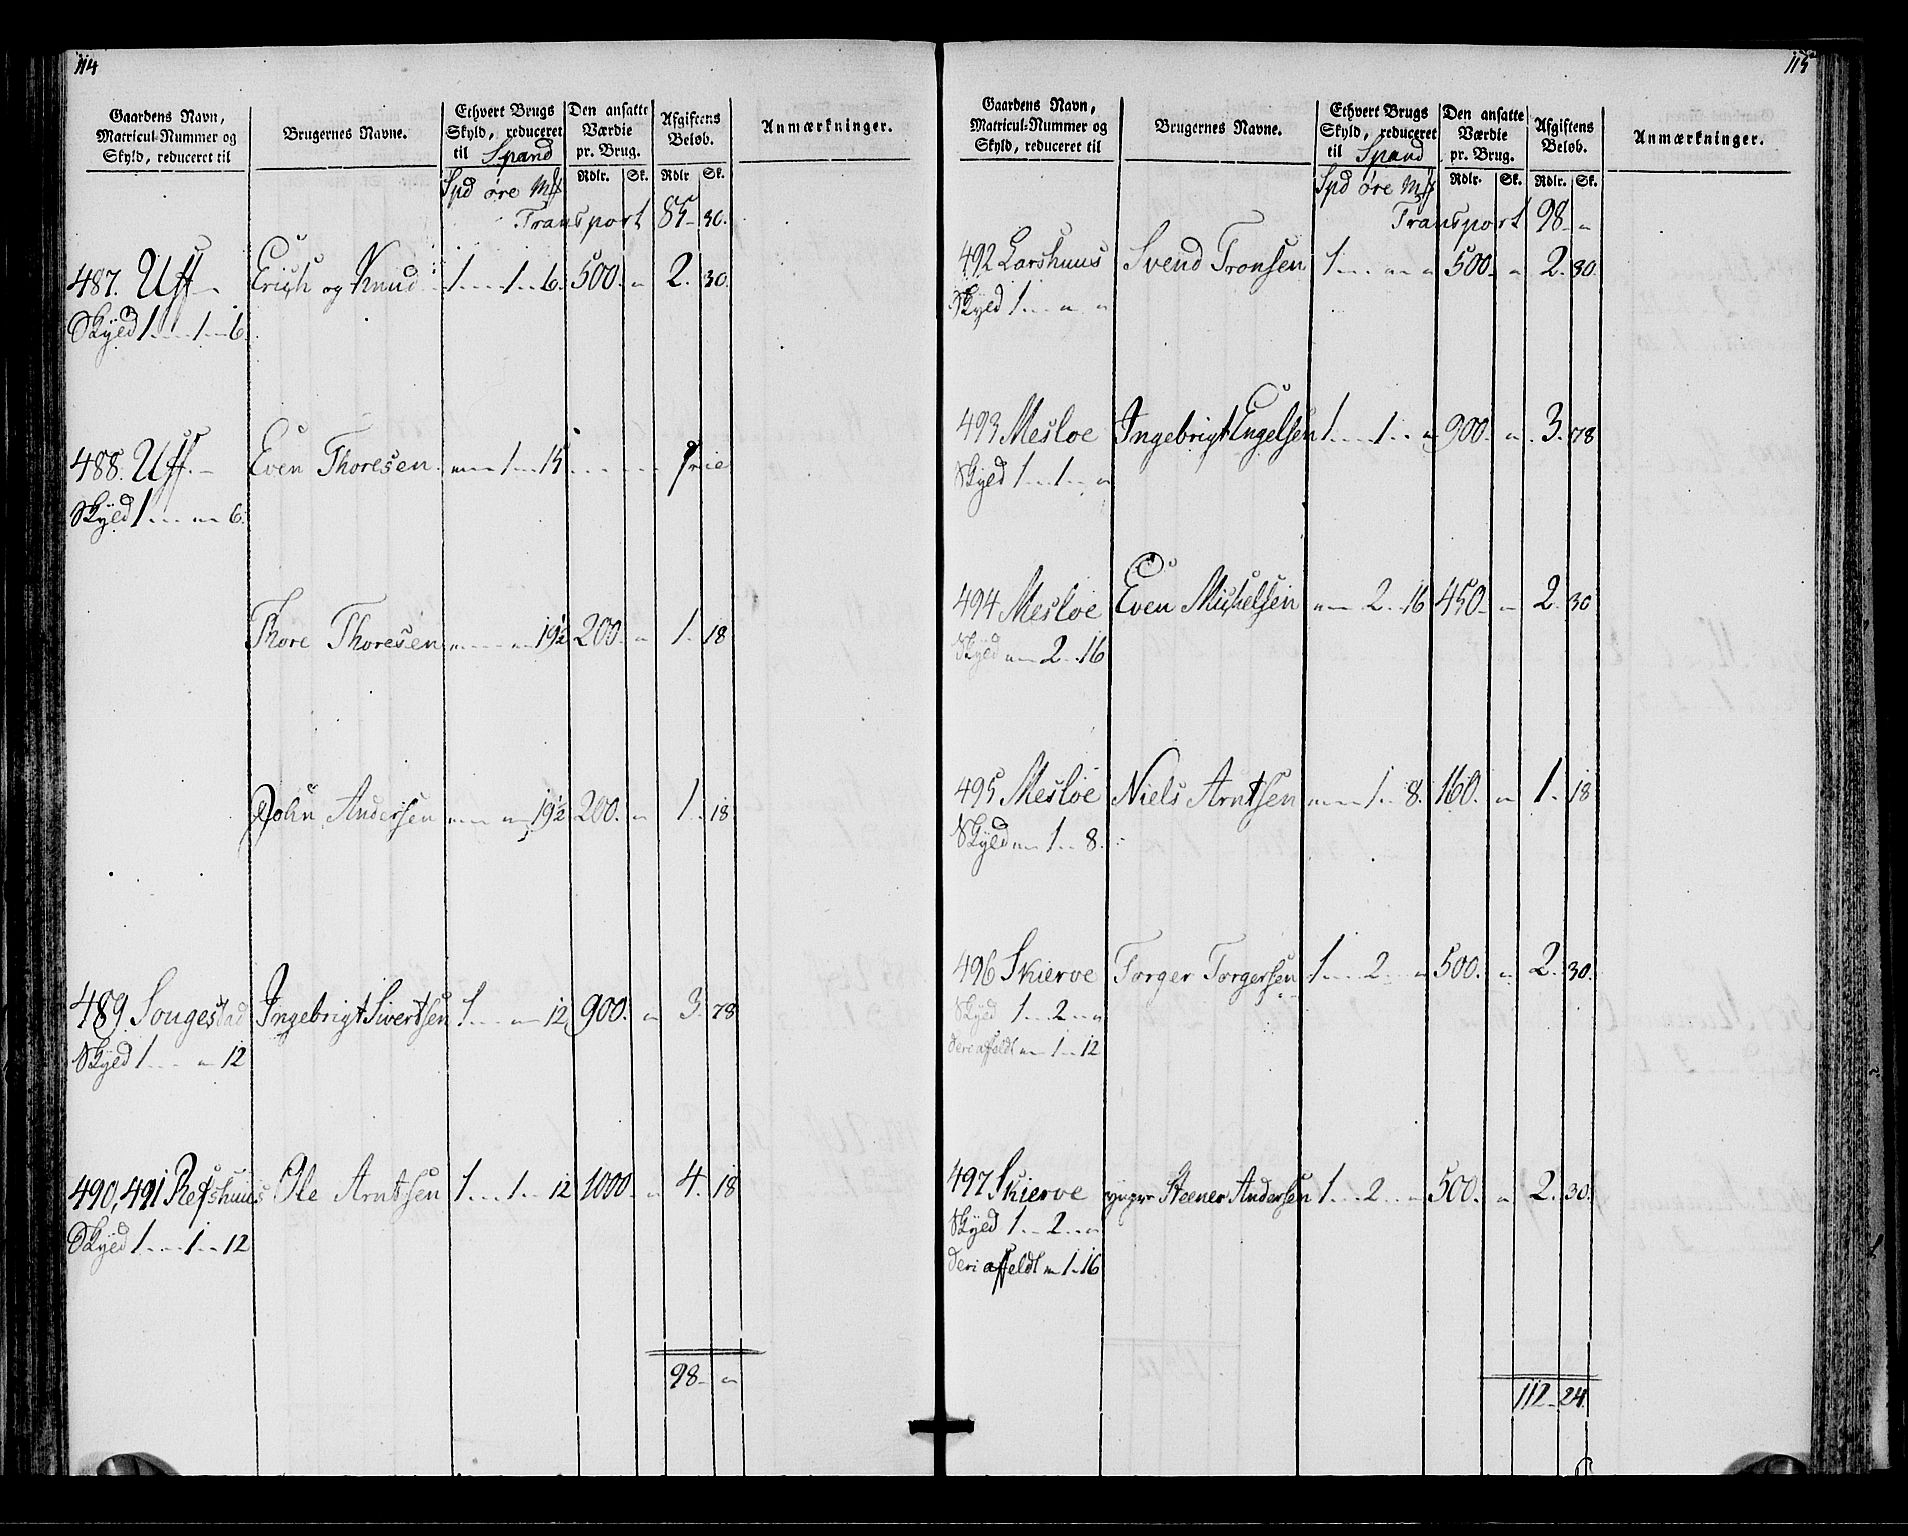 114
Gaardens Navn, Matricul-Nummer og Skyld, reduceret til | Brugernes Navne. | Ethvert Brugs Skyld, reduceret til Spand | Den ansatte Værdie pr. Brug. | Afgiftens Beløb. | Anmærkninger.
Spd øre Mß | Rdlr. | Sk. | Rdlr | Sk.
Transport 85 30.
487. Uff Erich og Knud 1 1 6. 500. " 2. 30.
Skyld 1 1 6.
488. Uff. Even Thoresen. " 1 15 frie
Skyld 1 " 6.
Thore Thoresen " " 19½ 200. " 1. 18
John Andersen " " 19½ 200. " 1. 18
489 Songestad Ingebrigt Sivertsen 1 " 12 900. " 3. 78
Skyld 1 " 12
490, 491 Refshuus Ole Arntsen 1 1 12 1000 " 4. 18
Skyld 1 1 12
98 "
115
Gaardens Navn, Matricul-Nummer og Skyld, reduceret til | Brugernes Navne. | Ethvert Brugs Skyld, reduceret til Spand | Den ansatte Værdie pr. Brug. | Afgiftens Beløb. | Anmærkninger.
Spd øre Mß | Rdlr. | Sk. | Rdlr. | Sk.
Transport 98 "
492 Larshuus Svend Tronsen 1 " " 500. " 2. 30.
Skyld 1 " "
493 Mesloe Ingebrigt Engelsen 1 1 " 900. " 3. 78
Skyld 1 1 "
494 Mesloe Even Michelsen " 2 16 450 " 2 30
Skyld " 2 16
495 Mesloe Niels Arntsen " 1 8. 160. " 1. 18
Skyld " 1 8.
496 Skierve Torger Torgersen 1 2 " 500. " 2. 30.
Skyld 1 2 "
deri affeldt " 1 12
497 Skierve yngre Steener Andersen 1 2 " 500. " 2. 30.
Skyld 1 2 "
deri affeldt " 1 16
112 24.